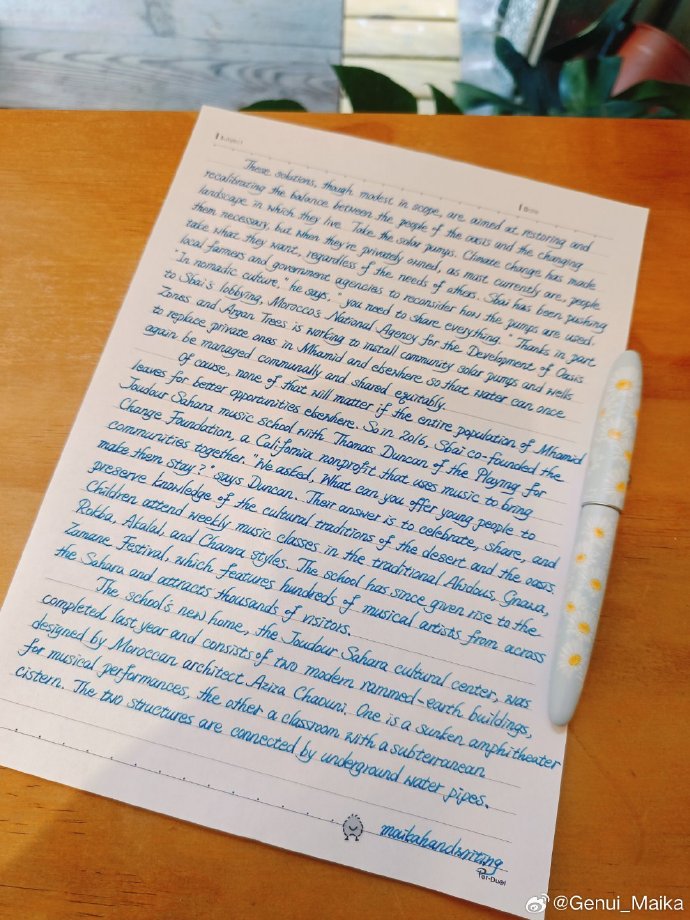 Subject
Date
These solutions, though modest in scope, are aimed at restoring and
recalibrating the balance between the people of the oasis and the changing
landscape in which they live. Take the solar pumps. Climate change has made
them necessary, but when they're privately owned, as most currently are, people
take what they want, regardless of the needs of others. Sbai has been pushing
local farmers and government agencies to reconsider how the pumps are used.
"In nomadic culture," he says, "you need to share everything." Thanks in part
to Sbai's lobbying, Morocco's National Agency for the Development of Oasis
Zones and Argan Trees is working to install community solar pumps and wells
to replace private ones in Mhamid and elsewhere so that water can once
again be managed communally and shared equitably.
Of cause, none of that will matter if the entire population of Mhamid
leaves for better opportunities elsewhere. So in 2016, Sbai co-founded the
Joudour Sahara music school with Thomas Duncan of the Playing for
Change Foundation, a California nonprofit that uses music to bring
communities together. "We asked, What can you offer young people to
make them stay?" says Duncan. Their answer is to celebrate, share, and
preserve knowledge of the cultural traditions of the desert and the oasis.
Children attend weekly music classes in the traditional Ahidous, Gnawa,
Rokba, Akalal, and Chamra styles. The school has since given rise to the
Zamane Festival, which features hundreds of musical artists from across
the Sahara and attracts thousands of visitors.
The school's new home, the Joudour Sahara cultural center, was
completed last year and consists of two modern rammed-earth buildings,
designed by Moroccan architect Aziza Chaouni. One is a sunken amphitheater
for musical performances, the other a classroom with a subterranean
cistern. The two structures are connected by underground water pipes.
maikahandwriting
Per-Duet
@Genui_Maika